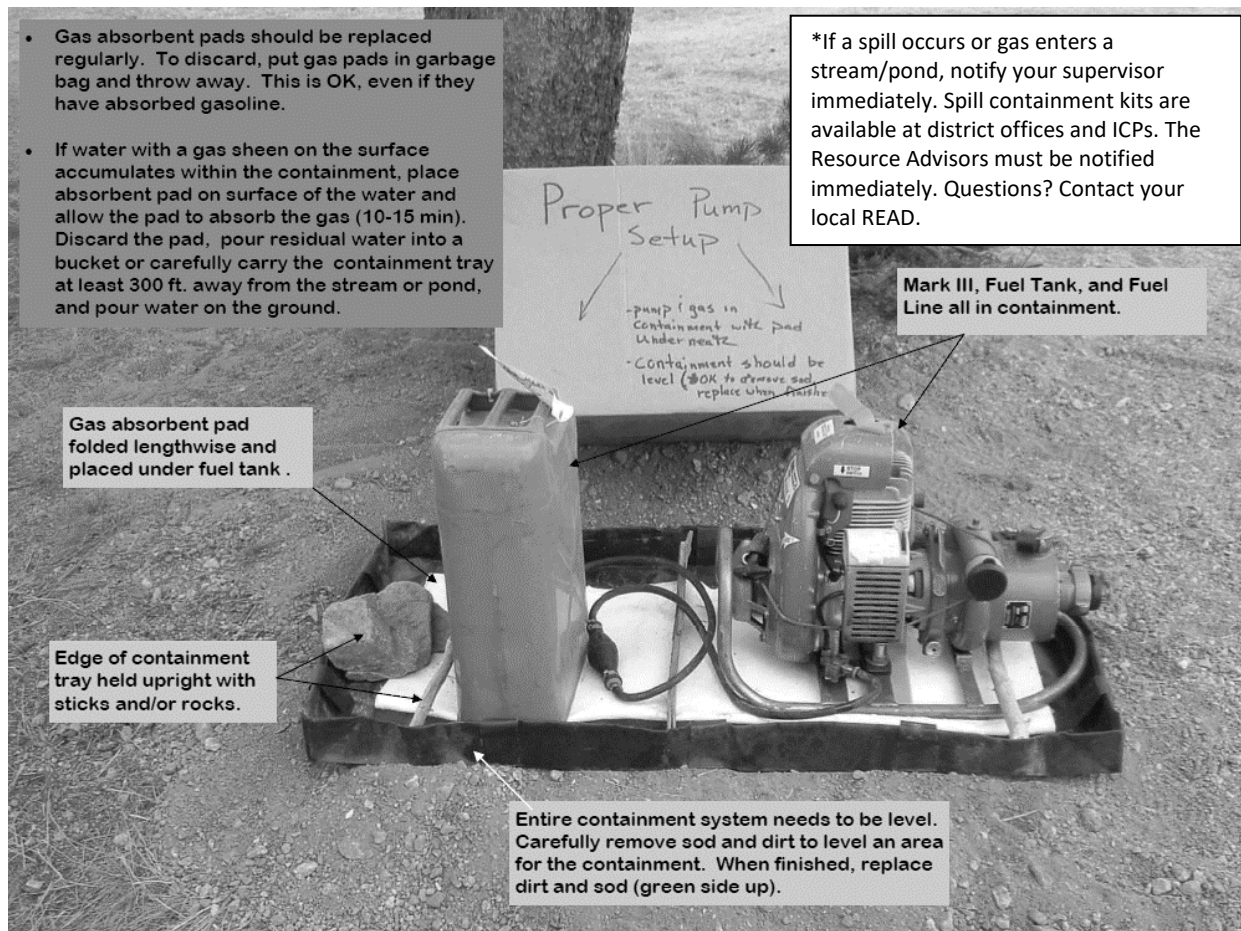 • Gas absorbent pads should be replaced
regularly. To discard, put gas pads in garbage
bag and throw away. This is OK, even if they
have absorbed gasoline.
• If water with a gas sheen on the surface
accumulates within the containment, place
absorbent pad on surface of the water and
allow the pad to absorb the gas (10-15 min).
Discard the pad, pour residual water into a
bucket or carefully carry the containment tray
at least 300 ft. away from the stream or pond,
and pour water on the ground.
*If a spill occurs or gas enters a
stream/pond, notify your supervisor
immediately. Spill containment kits are
available at district offices and ICPs. The
Resource Advisors must be notified
immediately. Questions? Contact your
local READ.
Proper Pump
Setup
-pump & gas in
containment with pad
Underneath
-Containment should be
level (OK to remove sod,
replace when finishe
Mark III, Fuel Tank, and Fuel
Line all in containment.
Gas absorbent pad
folded lengthwise and
placed under fuel tank .
Edge of containment
tray held upright with
sticks and/or rocks.
STOP
Entire containment system needs to be level.
Carefully remove sod and dirt to level an area
for the containment. When finished, replace
dirt and sod (green side up).